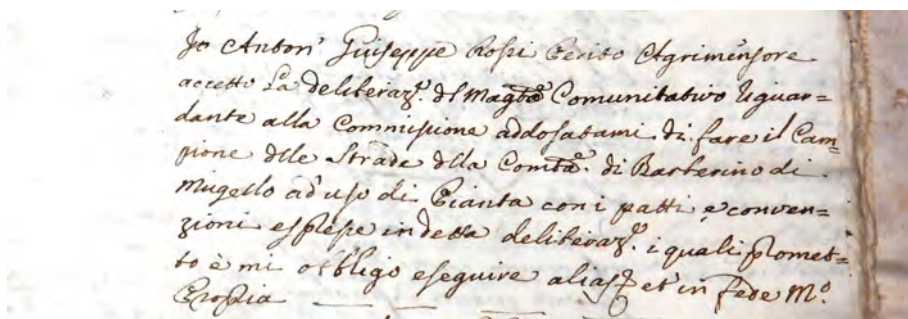 Io Anton' Giuseppe Rossi Perito Agrimensore
accetto La deliberaz.e del Magto Comunitativo riguar=
dante alla Commissione addosatami di fare il Cam=
pione delle Strade della Comtà. di Barberino di
Mugello ad'uso di Pianta con i patti e conven=
zioni espresse in detta deliberaz.e i quali promet=
to è mi obbligo eseguire alias et in fede M.o
Propria